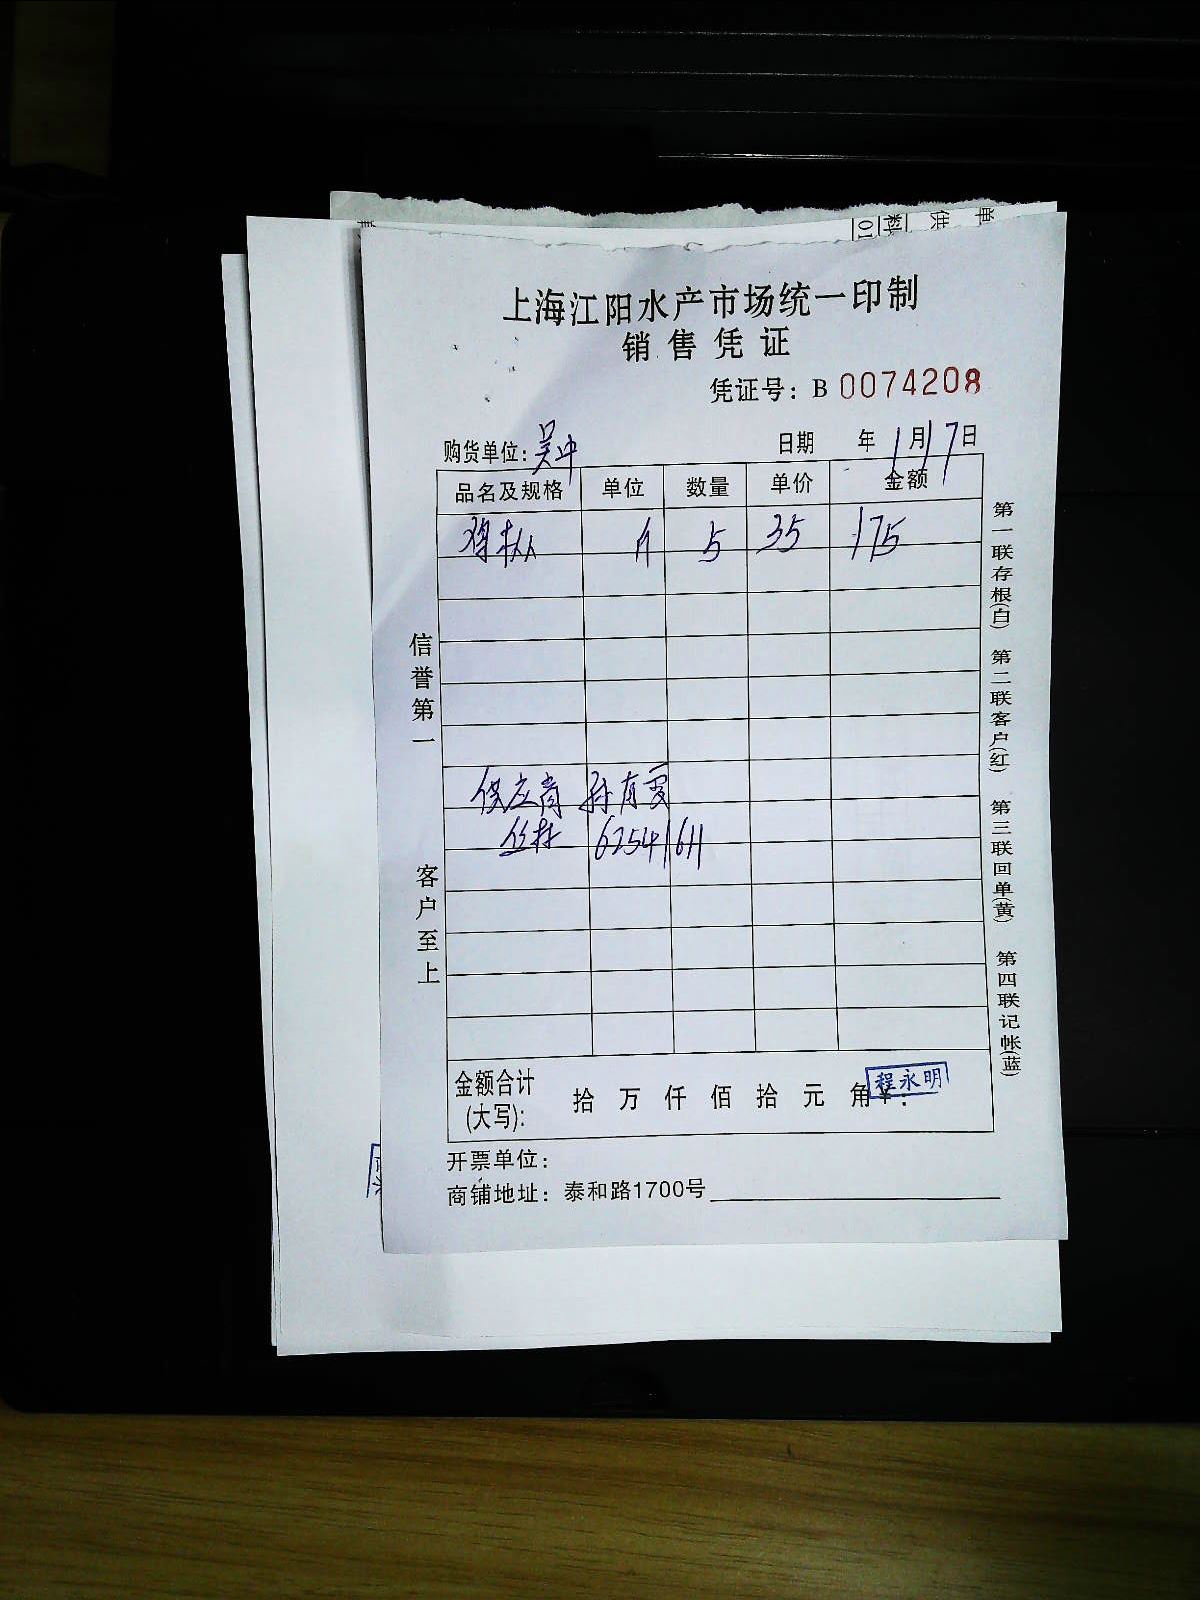 单 供 料 01
上海江阳水产市场统一印制
销售凭证
凭证号：B 0074208
购货单位：吴中
日期 年 1月17日
品名及规格 单位 数量 单价 金额
鸡枞 斤 5 35 175
供应商 孙有雯
62541611
金额合计
(大写)： 拾 万 仟 佰 拾 元 角 ￥：
程永明
开票单位：
商铺地址：泰和路1700号
信誉第一 客户至上
第一联存根(白) 第二联客户(红) 第三联回单(黄) 第四联记帐(蓝)